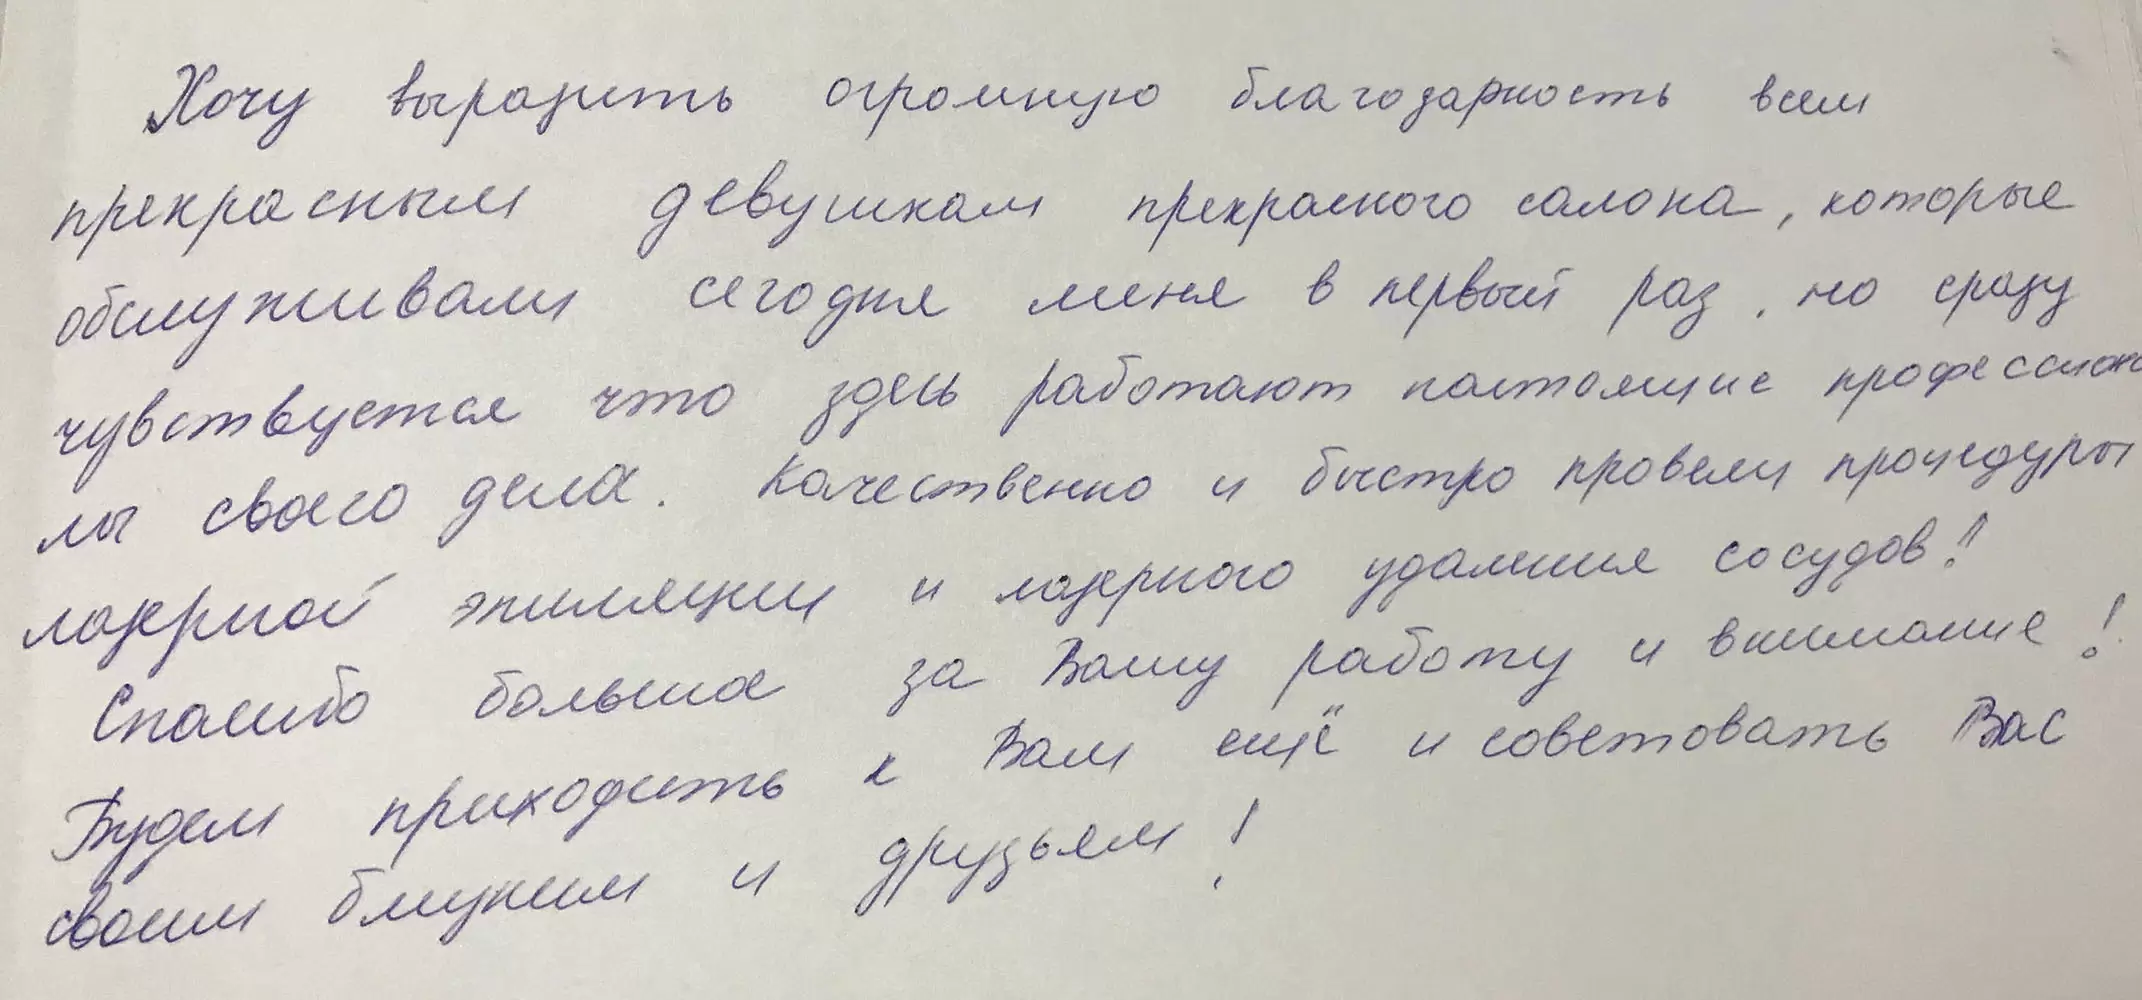 Хочу выразить огромную благодарность всем
прекрасным девушкам прекрасного салона, которые
обслуживали сегодня меня в первый раз, но сразу
чувствуется что здесь работают настоящие профессиона
лы своего дела. Качественно и быстро провели процедуры
лазерной эпиляции и лазерного удаления сосудов!
Спасибо больша за Вашу работу и внимание!
Будем приходить к Вам ещё и советовать Вас
своим близким и друзьям!